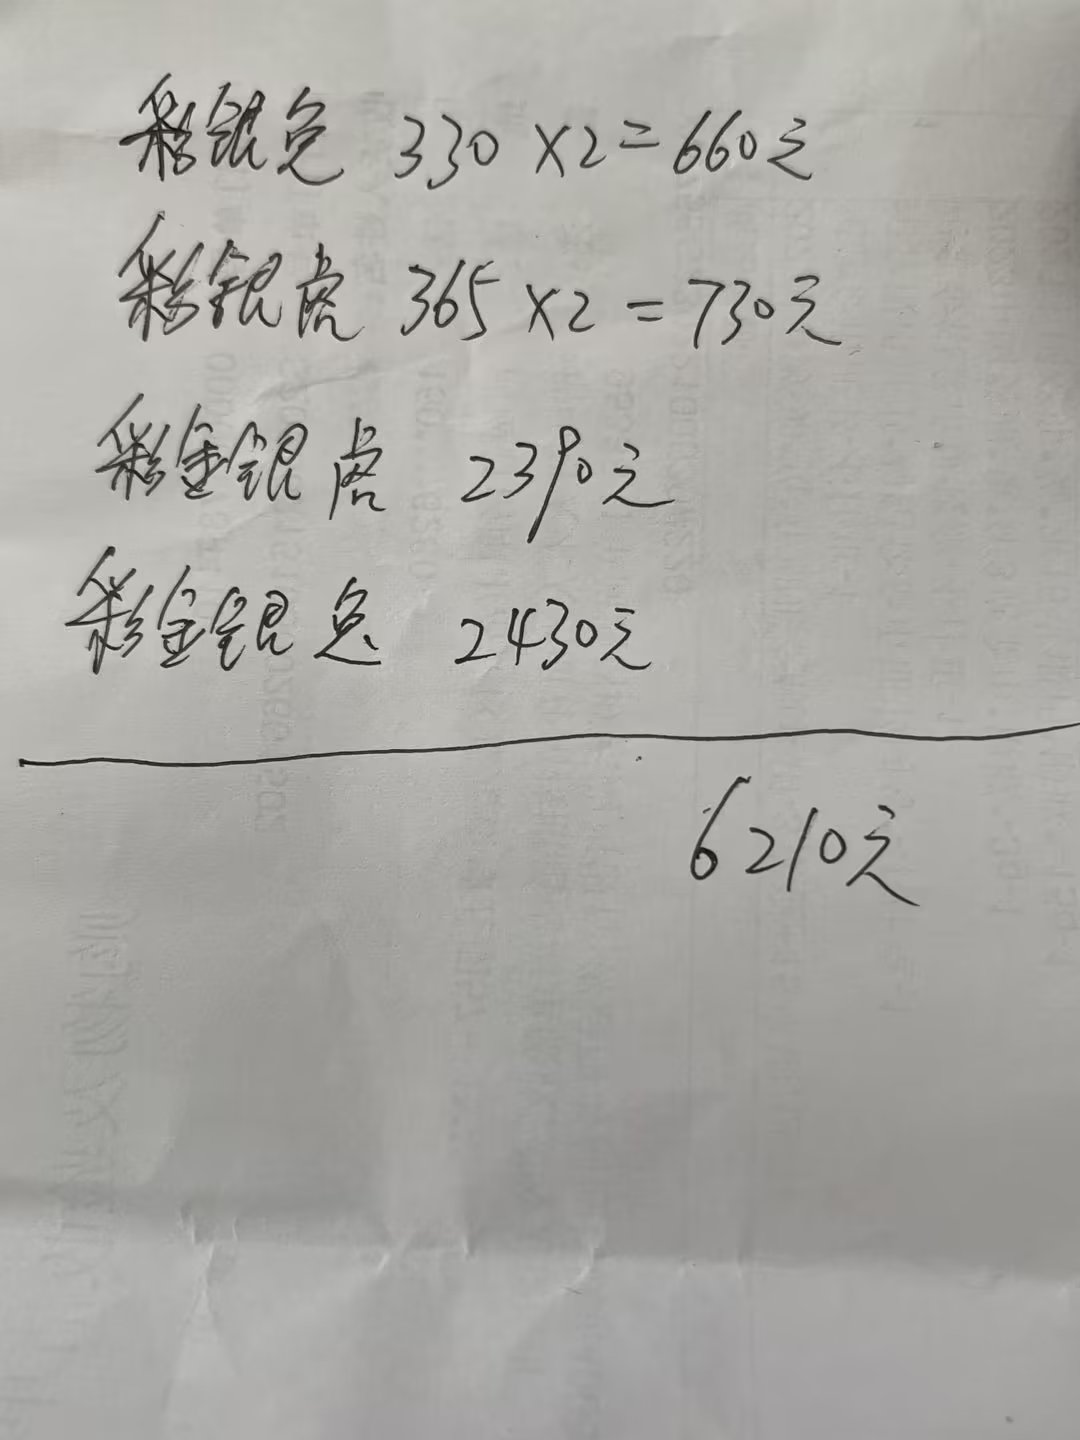 彩银兔 330×2=660元
彩银虎 365×2=730元
彩金银虎 2390元
彩金银兔 2430元
6210元